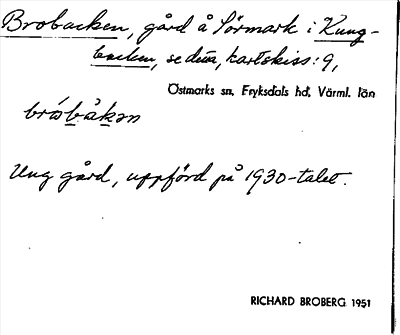 Brobacken, gård å Sörmark i Kung-
backen, se d:a, kartskiss: 9,
Östmarks sn, Fryksdals hd, Värml. län
Ung gård, uppförd på 1930-talet.
RICHARD BROBERG 1951